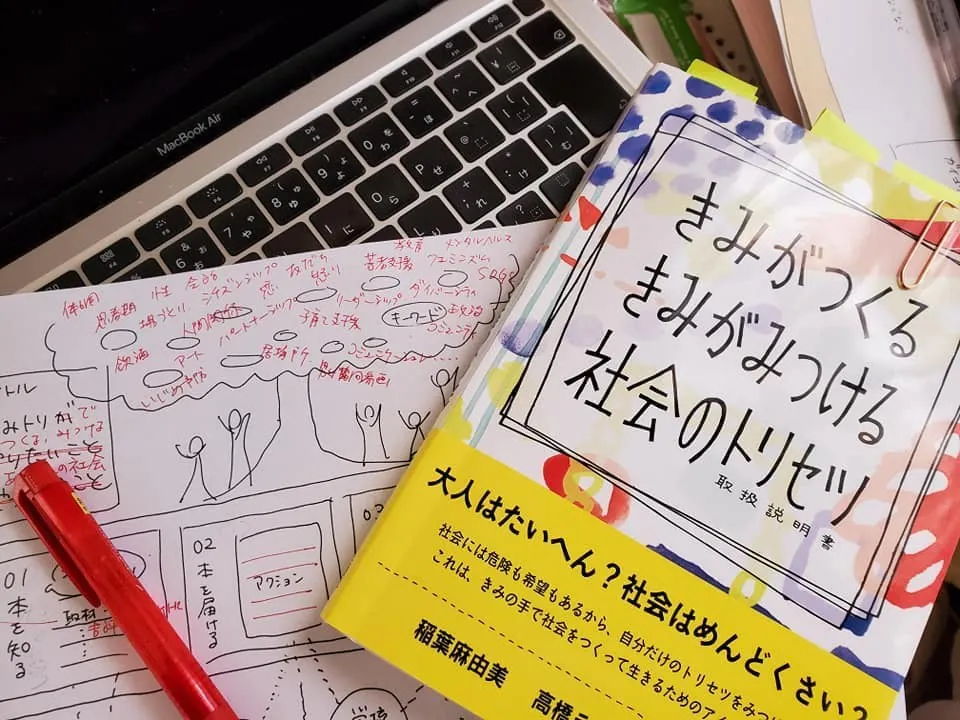 MacBook Air
きみがつくる
きみがみつける
社会のトリセツ
取扱説明書
大人はたいへん?社会はめんどくさい?
社会には危険も希望もあるから、自分だけのトリセツをみつ
これは、きみの手で社会をつくって生きるためのアイ
稲葉麻由美
高橋
教育 メンタルヘルス
若者支援 フェミニズム
SDGs
体
思春期
性
シチズンシップ
恋
友だち
人間関係
パートナーシップ
リーダーシップ
ダイバーシティ
キーワード
政治
コミュニティ
子育て支援
飲酒
アート
居場所
コミュニケーション……
いじめ予防
トル
みトリがで
つくる、みつける
やりたいこと
の社会
こと
01
本を知る
取材
02
本を届ける
アクション
03